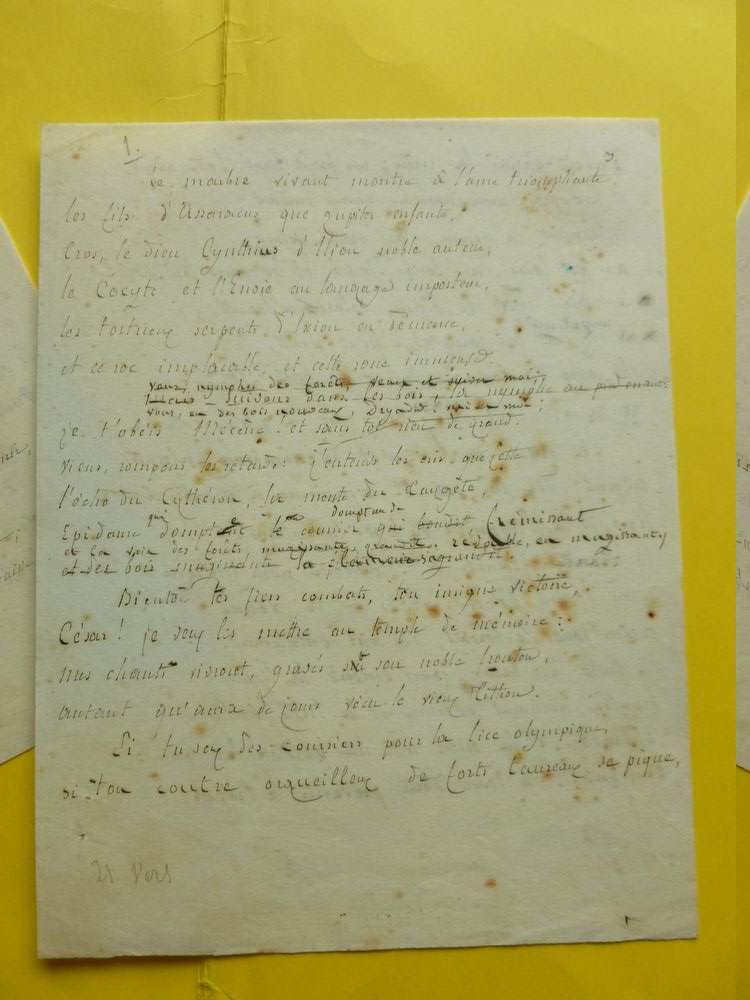 1. 3.
le marbre vivant montre à l'ame triomphante
les fils d'Assaracus que jupiter enfante,
Tros, le dieu Cynthius d'Ilion noble auteur,
le Cocyte et l'Envie au langage imposteur,
les tortueux serpents d'Ixion en démence,
et ce roc implacable, et cette roue immense.
venez, nymphes des forêts, venez, et suivez moi.
suivons dans les bois, la nymphe au pied errant.
vous, en des bois nouveaux, Dryades! suivez moi;
je t'obéis Mécène! et sans toi rien de grand.
viens, rompons les retards: j'entends les cris que jette
l'écho du Cythéron, les monts du Taygète,
domptant de
Epidaure qui dompt le coursier qui bondit, frémissant
et la voix des forêts, mugissante, grandit. redouble, en mugissant,
et des bois mugissants la sagrandit.
Bientôt tes fiers combats, ton insigne victoire,
César! je veux les mettre au temple de mémoire:
mes chants vivront, gravés sur son noble fronton,
autant qu'aura de jours vécu le vieux Titton.
Si tu veux des coursiers pour la lice olympique,
si ton contre orgueilleux de forts taureaux se pique,
21. Vers